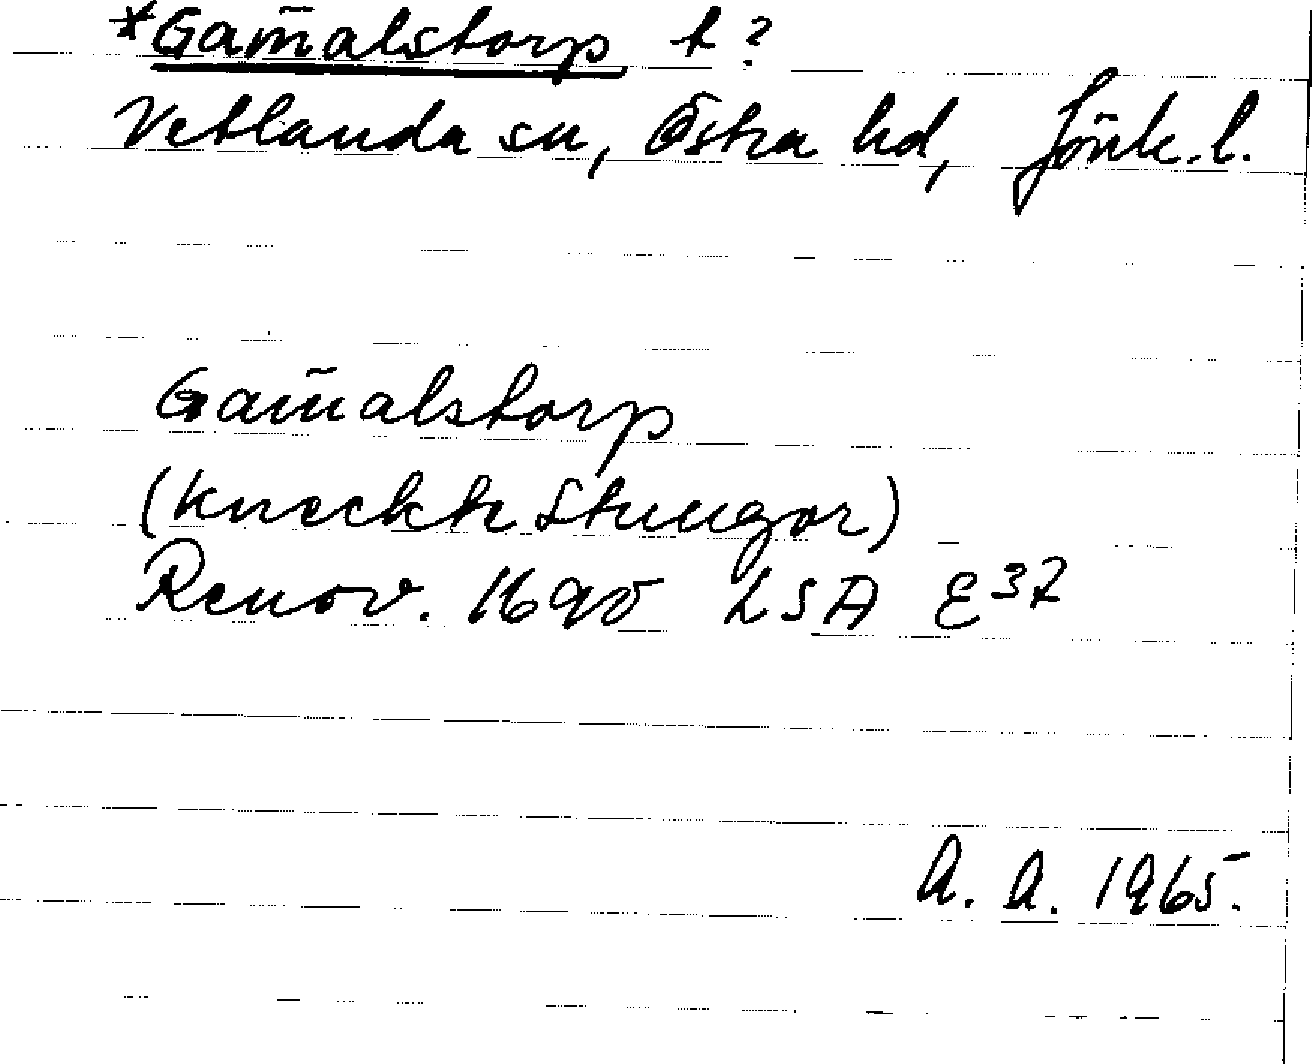 *Gam̄alstorp t?
Vetlanda sn, Östra hd, Jönk. l.
Gam̄alstorp
(Kneckte Stungor)
Renov. 1690 LSA E37
A. A. 1965.